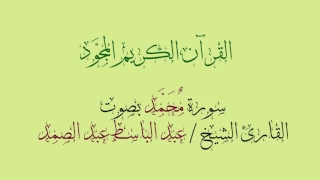 القرآن الكريم المجوَّد
سورة مُحَمَّد بصوت
القارئ الشيخ / عبد الباسط عبد الصمد